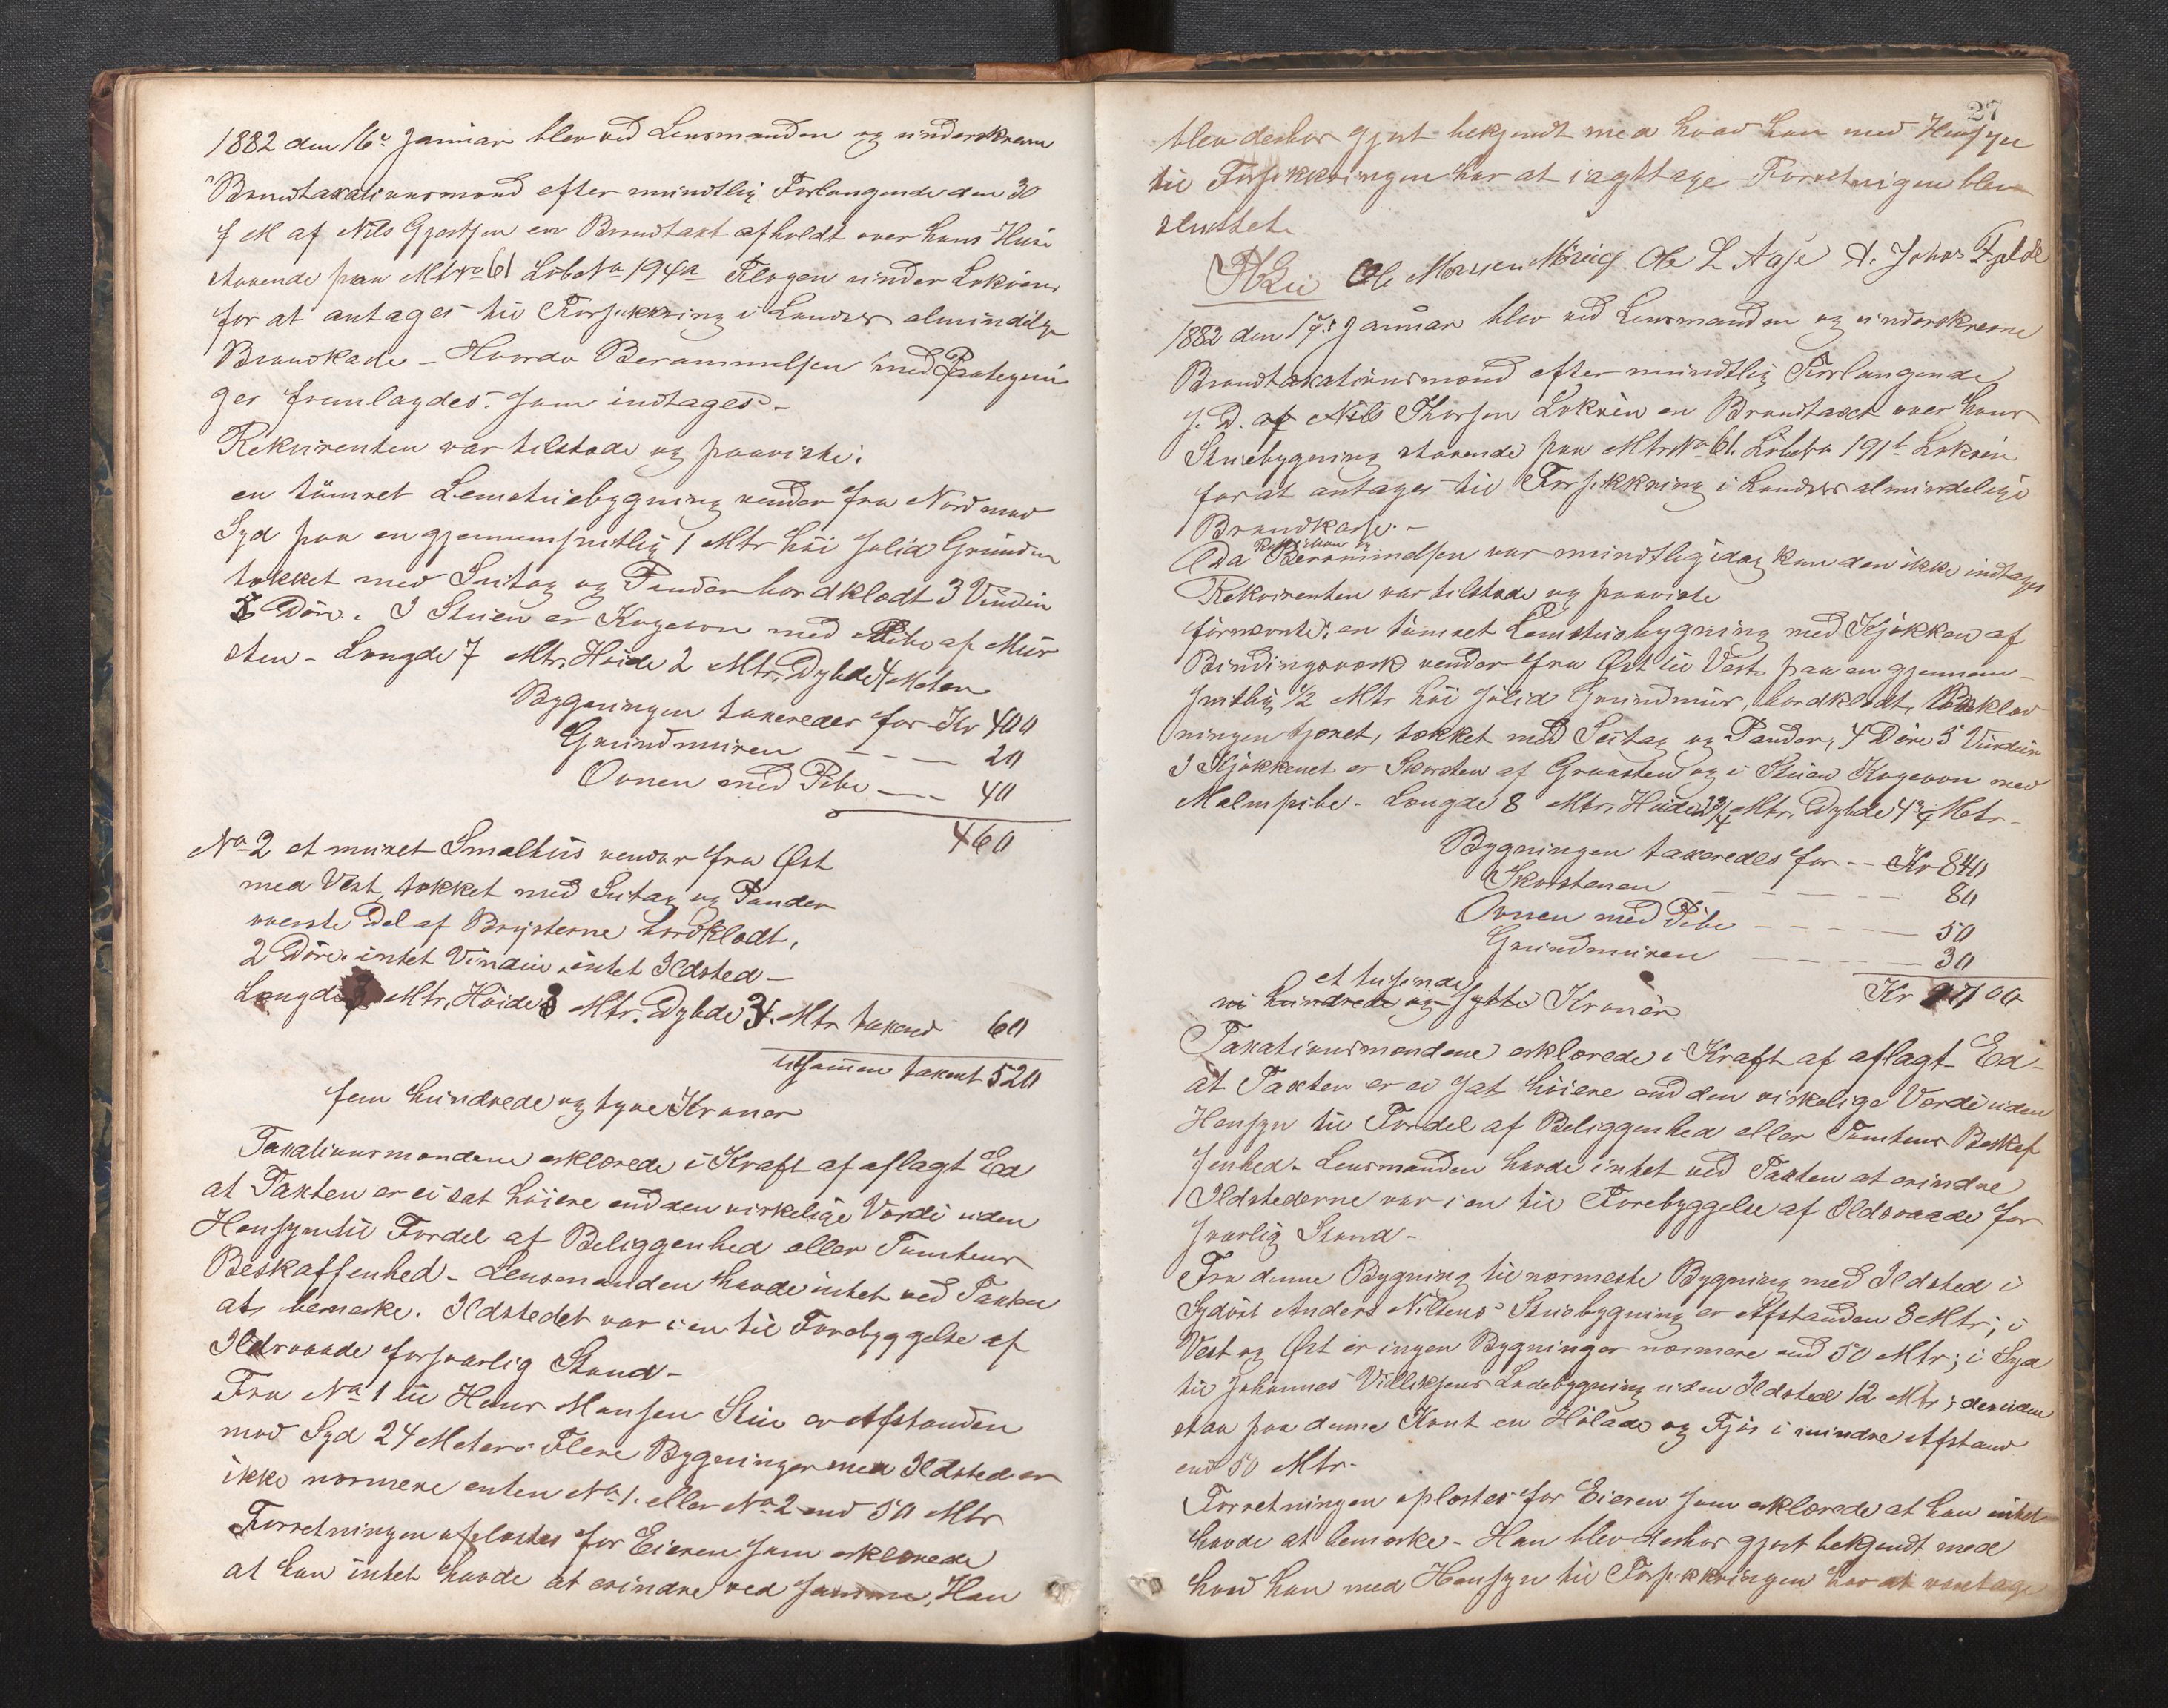 1882 den 16de Januar blev ved Lensmanden og underskrevne
Brandtaxationsmænd efter mundtlig Forlangende den 30
f M af Nils Gjertsen en Brandtaxt afholdt over hans Huse
staaende paa MtrNo 61 LöbeNo 194a Klogen under Lokvin
for at antages til Forsikkring i Landets almindlige
Brandkasse - Hvorda Berammelsen med Paategnin
ger fremlagdes. som indtages -
Rekvirenten var tilstede og paaviste:
en tömret Lemstuebygning vender fra Nord mod
Syd paa en gjennemsnitlig 1 Mtr höi solid Grundmur
tækket med Sutag og Pander bordklædt 3 Vinduer
Döre. I Stuen er Kogeovn med Pibe af Mur
sten - Længde 7 Mtr, Höide 2 Mtr, Dybde 4 Meter
Bygningen taxeredes for Kr 400
Grundmuren - - - 20
Ovnen med Pibe - - - 40
460
No 2 et muret Smalhus vender fra Öst
med Vest, tækket med Sutag og Pander
överste Del af Brysterne bordklædt,
2 Döre. intet Vindu, intet Ildsted -
Længde Mtr, Höide Mtr. Dybde Mtr. taxered 60
tilsammen taxert 520
fem hundrede og tyve Kroner
Taxationsmændene erklærede i Kraft af aflagt Ed
at Taxten er ei sat höiere end den virkelige Værdi uden
Hensyn til Fordel af Beliggenhed eller Tomtens
Beskaffenhed - Lensmanden havde intet ved Taxten
at bemærke. Ildstedet var i en til Forebyggelse af
Ildsvaade forsvarlig Stand -
Fra No 1 til Hans Monsen Stue er Afstanden
mod Syd 24 Meter. Flere Bygninger med Ildsted er
ikke nærmere enten No 1. eller No 2 end 50 Mtr
Forretningen oplæstes for Eieren som erklærede
at han intet havde at erindre ved samme, Han
27
blev derhos gjort bekjendt med hvad han med Hensyn
til Forsikkringen har at iagttage Forretnigen blev
sluttet
Ole Monsen Ole L Aase A. Johns Fjelde
1882 den 17de Januar blev ved Lensmanden og underskrevne
Brandtaxationsmænd efter mundtlig Forlangende
s. D. af Nils Thorsen Lokvin en Brandtaxt over hans
Stuebygning staaende paa MtrNo 61. LöbeNo 191b Lokvin
for at antages til Forsikkring i Landets almindelige
Brandkasse. -
Rekvisition og
Da Berammelsen var mundtlig idag kan den ikke indtages
Rekvirenten var tilstede og paaviste
fornævnte: en tömret Lemstuebygning med Kjökken af
Bindingsværk vender fra Öst til Vest paa en gjennem-
snitlig 1/2 Mtr höi solid Grundmur, bordklædt, Bordklæd
ningen tjæret, tækket med Sutag og Pander, 4 Döre 5 Vinduer
I Kjökkenet er Skorsten af Graasten og i Stuen Kogeovn med
Malmpibe - Længde 8 Mtr, Höide 3/4 Mtr, Dybde 4 3/4 Mtr -
Bygningen taxeredes for - - Kr 840
Skorstenen - - - - 80
Ovnen med Pibe - - - - 50
Grundmuren - - - - 30
Kr 1000
et tusinde
ni hundrede og sytti Kroner
Taxationsmændene erklærede i Kraft af aflagt Ed
at Taxten er ei sat höiere end den virkelige Værdi uden
Hensyn til Fordel af Beliggenhed eller Tomtens Beskaf
fenhed. Lensmanden havde intet ved Taxten at erindre
Ildstederne var i en til Forebyggelse af Ildsvaade for
svarlig Stand -
Fra denne Bygning til nærmeste Bygning med Ildsted i
Sydöst Anders Nilsens Stuebygning er Afstanden 8 Mtr; i
Vest og Öst er ingen Bygninger nærmere end 50 Mtr; i Syd
til Johannes Villiksens Ladebygning uden Ildsted 12 Mtr; desuden
staa paa denne Kant en Hölade og Fjös i mindre Afstand
end 50 Mtr -
Forretningen oplæstes for Eieren som erklærede at han intet
havde at bemærke - Han blev derhos gjort bekjendt med
hvad han med Hensyn til Forsikkringen har at varetage